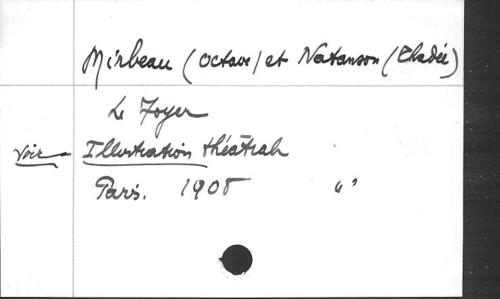 Mirbeau (Octave) et Natanson (Thadée)
Le Foyer
Voir - Illustration théâtrale
Paris. 1908 "